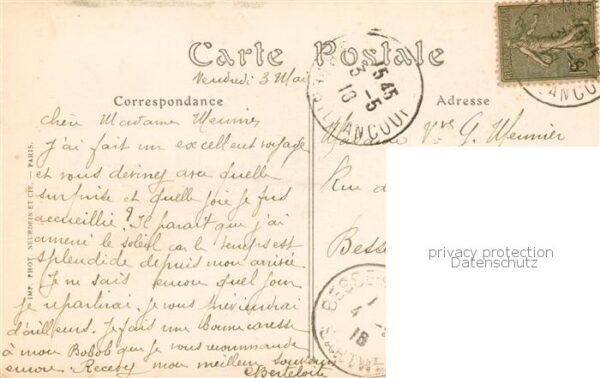 Carte Postale
Vendredi 3 Mai
Correspondance
Adresse
Chère Madame Meunier
J'ai fait un excellent voyage
et vous devinez avec quelle
surprise et quelle joie je fus
accueillie ? Il paraît que j'ai
amené le soleil car le temps est
splendide depuis mon arrivée
Je ne sais encore quel jour
je repartirai. je vous préviendrai
d'ailleurs. Je fais une bonne caresse
à mon Bobob que je vous recommande
encore. Recevez mon meilleur souvenir
Berteloite
IMP. PHOT. NEURDEIN ET CIE. - PARIS.
15 45
3 -5
18
LANCOURT
Vve G. Meunier
Rue d
Besse
BESSE
1
4 -
18
privacy protection
Datenschutz